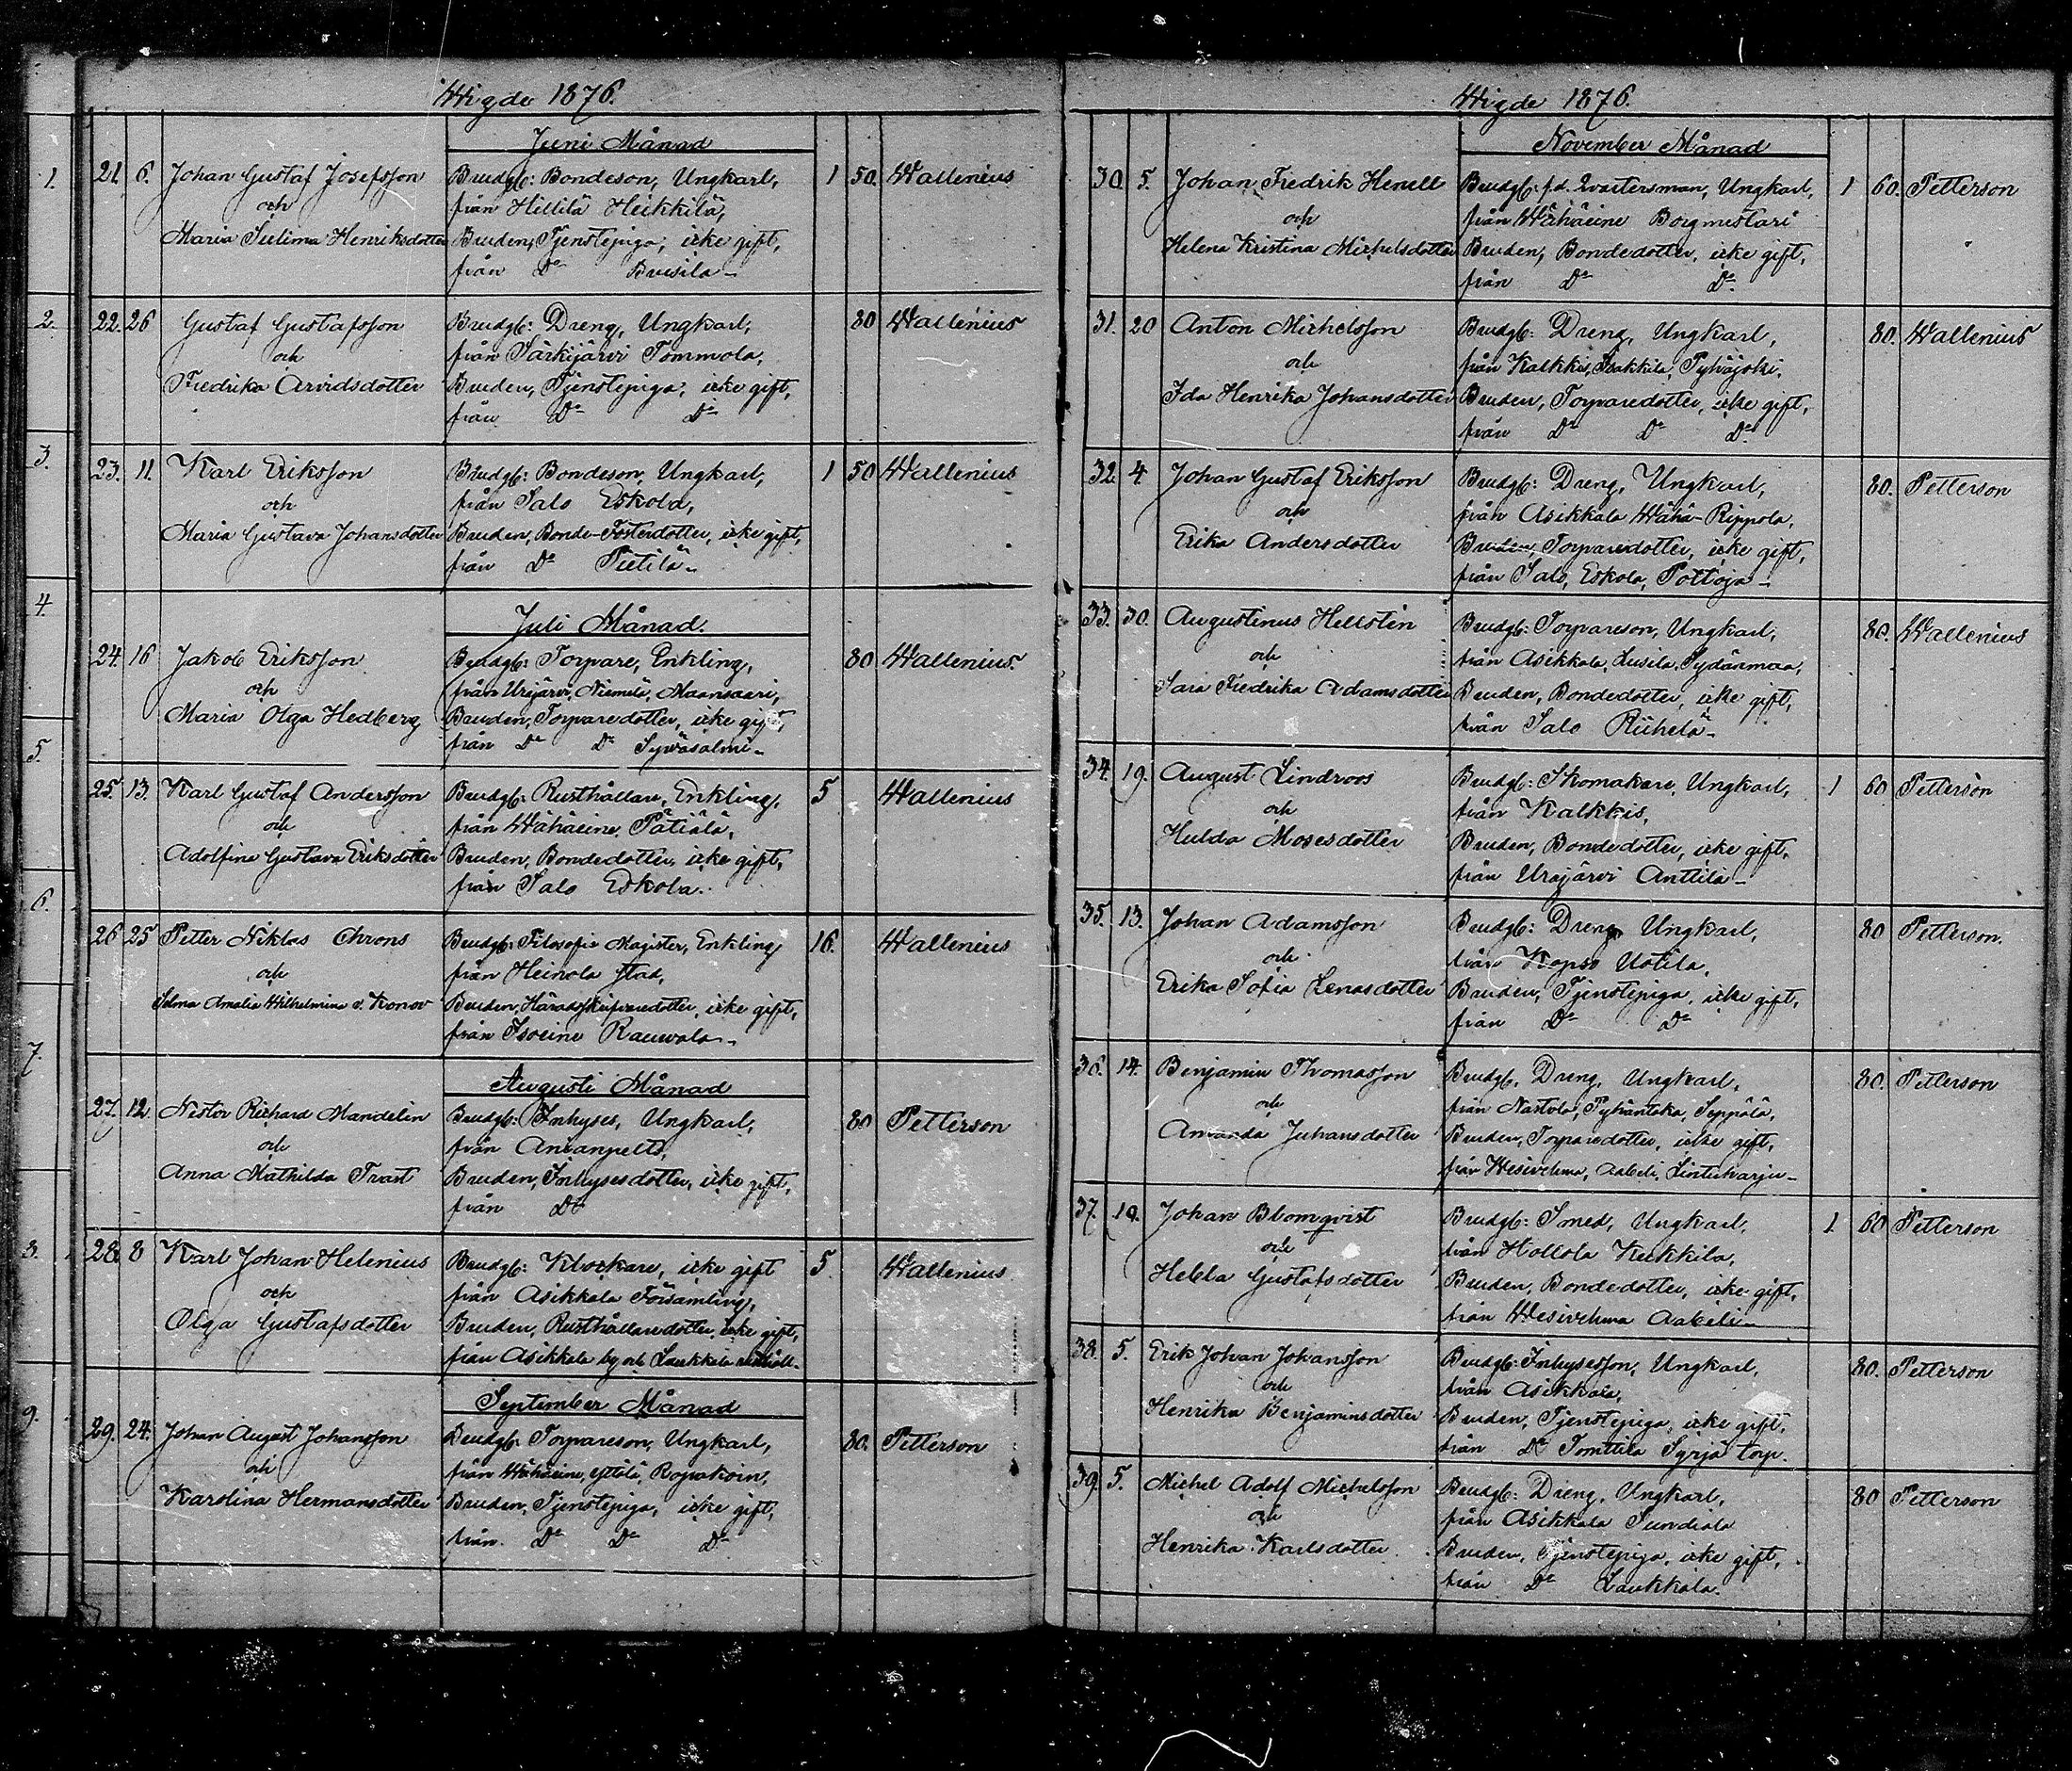 Wigde 1876.
Juni Månad
1. 21. 6. Johan Gustaf Josefsson Brudg: Bondeson, Ungkarl, 1 50. Wallenius
och från Hillilä Heikkilä,
Maria Selima Henriksdotter Bruden, Tjenstepiga, icke gift,
från Do
2. 22. 26 Gustaf Gustafsson Brudg: Dreng, Ungkarl, 80 Wallenius
och från Särkijärvi Tommola,
Fredrika Arvidsdotter Bruden, Tjenstepiga, icke gift,
från Do Do
3. 23. 11. Karl Eriksson Brudg: Bondeson, Ungkarl, 1 50 Wallenius
och från Salo Eskola,
Maria Gustava Johansdotter Bruden, Bonde-Fosterdotter, icke gift,
från Do Pietilä
4. Juli Månad.
24. 16 Jakob Eriksson Brudg: Torpare, Enkling, 80 Wallenius
och från Urajärvi, Niemelä, Maansaari,
Maria Olga Hedberg Bruden, Torparedotter, icke gift,
från Do Do Sywäsalmi
5. 25. 13. Karl Gustaf Andersson Brudg: Rusthållare, Enkling, 5 Wallenius
och från Wähäeine, Pätiälä,
Adolfina Gustava Eriksdotter Bruden, Bondedotter, icke gift,
från Salo Eskola.
6. 26 25 Petter Niklas Chrons Brudg: Filosofie Magister, Enkling 16. Wallenius
och från Heinola stad,
Selma Amalia Wilhelmina v. Konow Bruden, Häradsskrifvaredotter, icke gift,
från Isoeine Rauwala
7. Augusti Månad
27. 12. Nestor Richard Mandelin Brudg: Inhyses, Ungkarl, 80 Petterson
och från Anianpelto,
Anna Mathilda Trast Bruden, Inhysesdotter, icke gift,
från Do
8. 28. 8 Karl Johan Helenius Brudg: Klockare, icke gift 5. Wallenius
och från Asikkala Församling,
Olga Gustafsdotter Bruden, Rusthållaredotter, icke gift,
från Asikkala by och Laukkala rusthåll
9. September Månad
29. 24. Johan August Johansson Brudg: Torpareson, Ungkarl, 80. Petterson
och från Wähäeine, Yttälä,
Karolina Hermansdotter Bruden, Tjenstepiga, icke gift,
från Do Do Do
Wigde 1876.
November Månad
30. 5. Johan Fredrik Henell Brudg: fd. Qvartersman, Ungkarl, 1 60. Petterson
och från Wähäeine Borgmestari
Helena Kristina Michelsdotter Bruden, Bondedotter, icke gift,
från Do Do
31. 20 Anton Michelsson Brudg: Dreng, Ungkarl, 80. Wallenius
och från Kalkkis, Isakkila, Pyhäjoki,
Ida Henrika Johansdotter Bruden, Torparedotter, icke gift,
från Do Do Do
32. 4 Johan Gustaf Eriksson Brudg: Dreng, Ungkarl, 80. Petterson
och från Asikkala Wähä-Rippola,
Erika Andersdotter Bruden, Torparedotter, icke gift,
från Salo, Eskola,
33. 30. Augustinus Hellstén Brudg: Torpareson, Ungkarl, 80. Wallenius
och från Asikkala, Sydänmaa,
Sara Fredrika Adamsdotter Bruden, Bondedotter, icke gift,
från Salo Riihelä
34. 19. August Lindroos Brudg: Skomakare, Ungkarl, 1 60 Petterson
och från Kalkkis,
Hulda Mosesdotter Bruden, Bondedotter, icke gift,
från Urajärvi Anttila
35. 13. Johan Adamsson Brudg: Dreng Ungkarl, 80 Petterson.
och från Kopso Uotila,
Erika Sofia Lenasdotter Bruden, Tjenstepiga, icke gift,
från Do Do
36. 14. Benjamin Thomasson Brudg. Dreng, Ungkarl, 80. Petterson
och från Nastola, Pyhäntaka, Seppälä,
Amanda Juhansdotter Bruden, Torparedotter, icke gift,
från Wesivehma, Aakeli, Lintuharju
37. 19. Johan Blomqvist Brudg: Smed, Ungkarl, 1. 60 Petterson
och från Hollola Kukkila,
Helda Gustafsdotter Bruden, Bondedotter, icke gift,
från Wesivehma Aakeli
38. 5. Erik Johan Johansson Brudg: Inhysesson, Ungkarl, 80. Petterson
och från Asikkala,
Henrika Benjaminsdotter Bruden, Tjenstepiga, icke gift,
från Do Tomttila Syrjä torp.
39. 5. Michel Adolf Michelsson Brudg: Dreng, Ungkarl, 80 Petterson
och från Asikkala Sundiala
Henrika Karlsdotter Bruden, Tjenstepiga, icke gift,
från Do Laukkala.